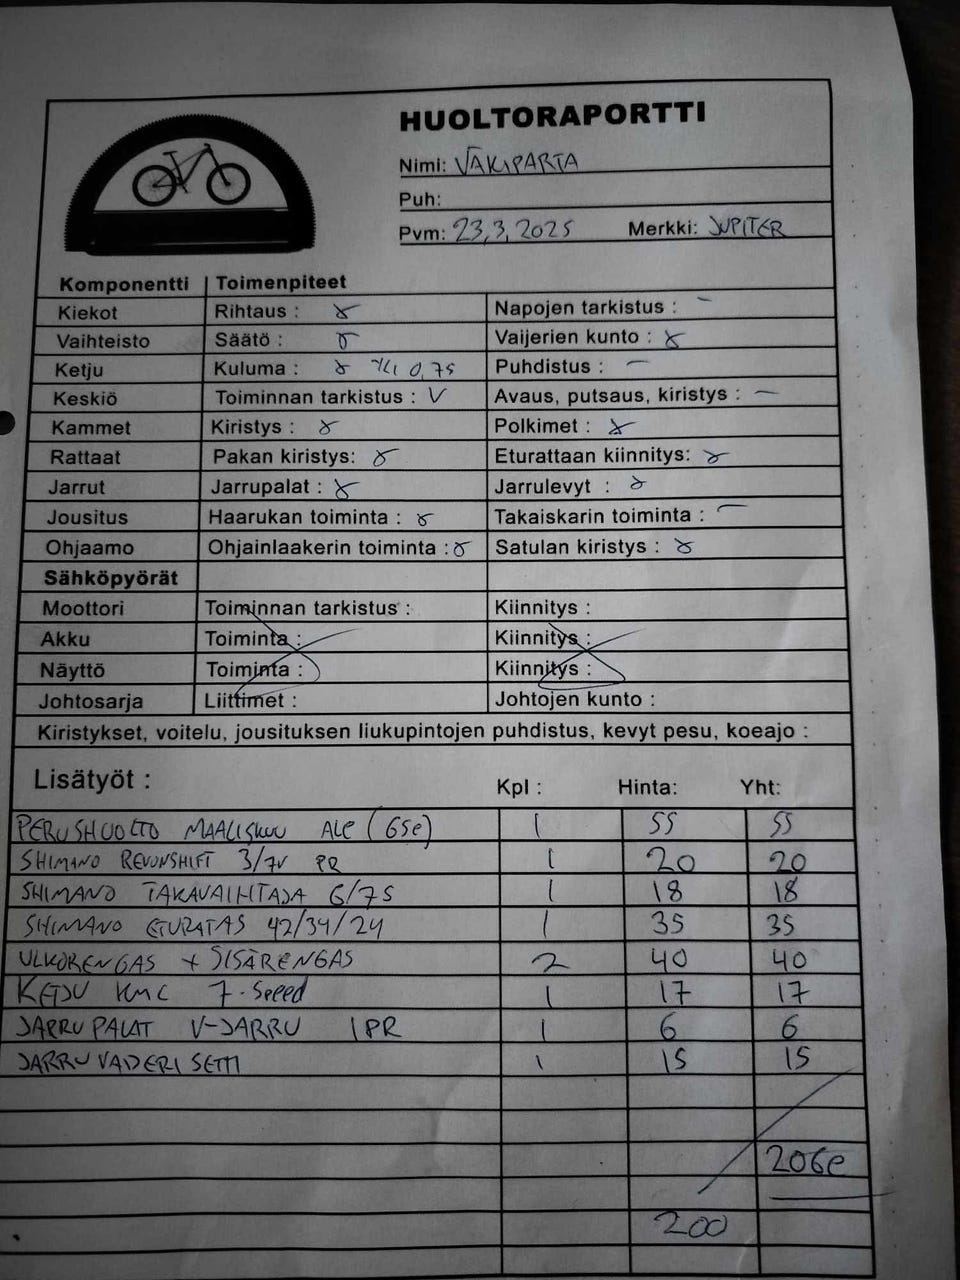 HUOLTORAPORTTI
Nimi: VÄKIPARTA
Puh:
Pvm: 23,3,2025 Merkki: JUPITER
Komponentti Toimenpiteet
Kiekot Rihtaus : Napojen tarkistus : –
Vaihteisto Säätö : Vaijerien kunto :
Ketju Kuluma : 0,75 Puhdistus : –
Keskiö Toiminnan tarkistus : V Avaus, putsaus, kiristys : –
Kammet Kiristys : Polkimet :
Rattaat Pakan kiristys: Eturattaan kiinnitys:
Jarrut Jarrupalat : Jarrulevyt :
Jousitus Haarukan toiminta : Takaiskarin toiminta : –
Ohjaamo Ohjainlaakerin toiminta : Satulan kiristys :
Sähköpyörät
Moottori Toiminnan tarkistus : Kiinnitys :
Akku Toiminta : Kiinnitys :
Näyttö Toiminta : Kiinnitys :
Johtosarja Liittimet : Johtojen kunto :
Kiristykset, voitelu, jousituksen liukupintojen puhdistus, kevyt pesu, koeajo :
Lisätyöt : Kpl : Hinta: Yht:
PERUSHUOLTO MAALISKUU ALE (65e) 1 55 55
SHIMANO REVONSHIFT 3/7V PR 1 20 20
SHIMANO TAKAVAIHTAJA 6/7S 1 18 18
SHIMANO ETURATAS 42/34/24 1 35 35
ULKORENGAS + SISÄRENGAS 2 40 40
KETJU KMC 7-Speed 1 17 17
JARRUPALAT V-JARRU 1PR 1 6 6
JARRUVAIJERI SETTI 1 15 15
206e
200